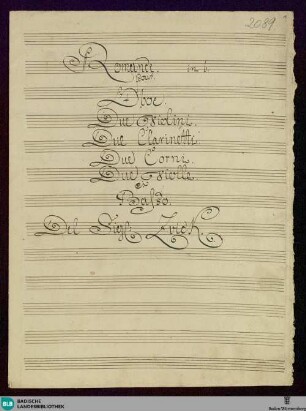 2089
Romance. in b.
pour
L'Oboe.
Due Violini.
Due Clarinetti.
Due Corni.
Due Viole.
e
Basso.
Del Sigl.
BLB
BADISCHE
LANDESBIBLIOTHEK
Baden-Württemberg